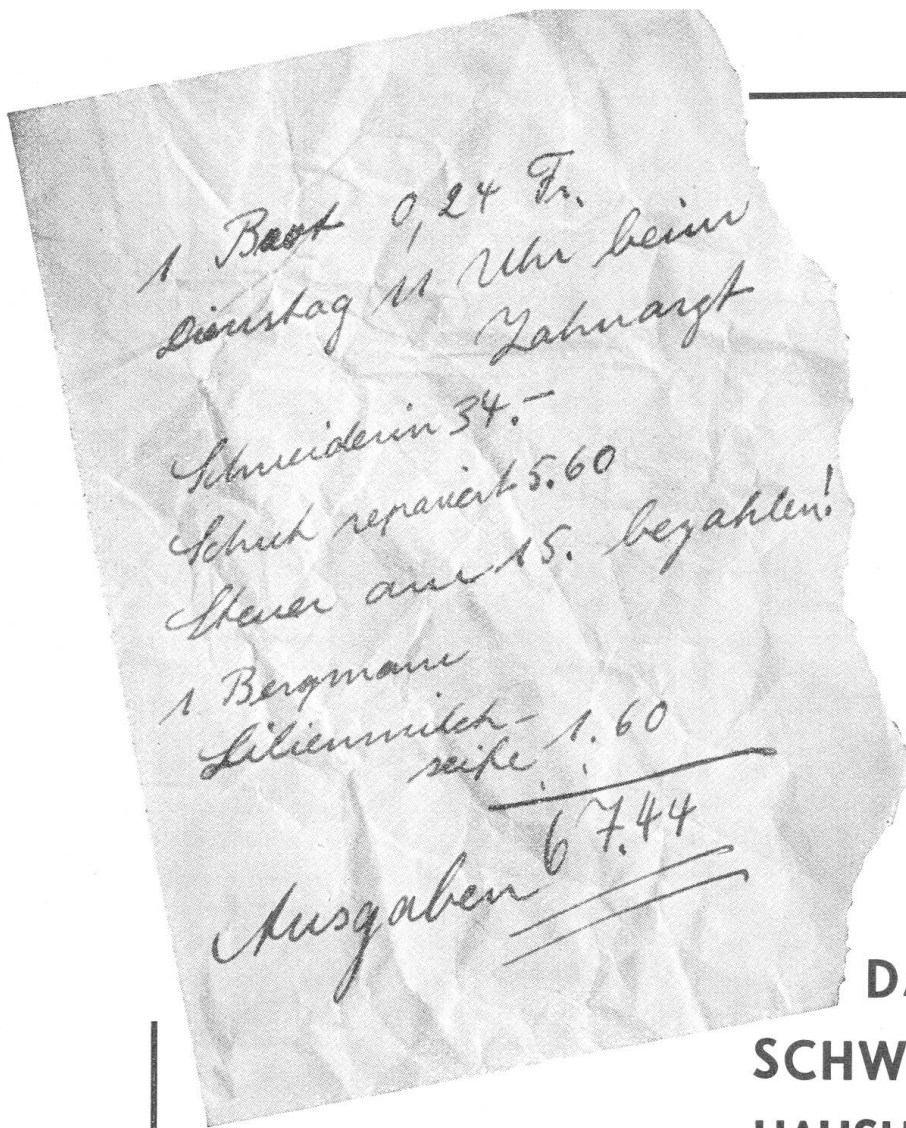 1 Brot 0,24 Fr.
Dienstag 11 Uhr beim
Zahnarzt
Schneiderin 34.–
Schuh repariert 5.60
Steuer am 15. bezahlen!
1 Bergmann
Lilienmilch-
seife 1.60
Ausgaben 67.44
DA
SCHW
HAUSH